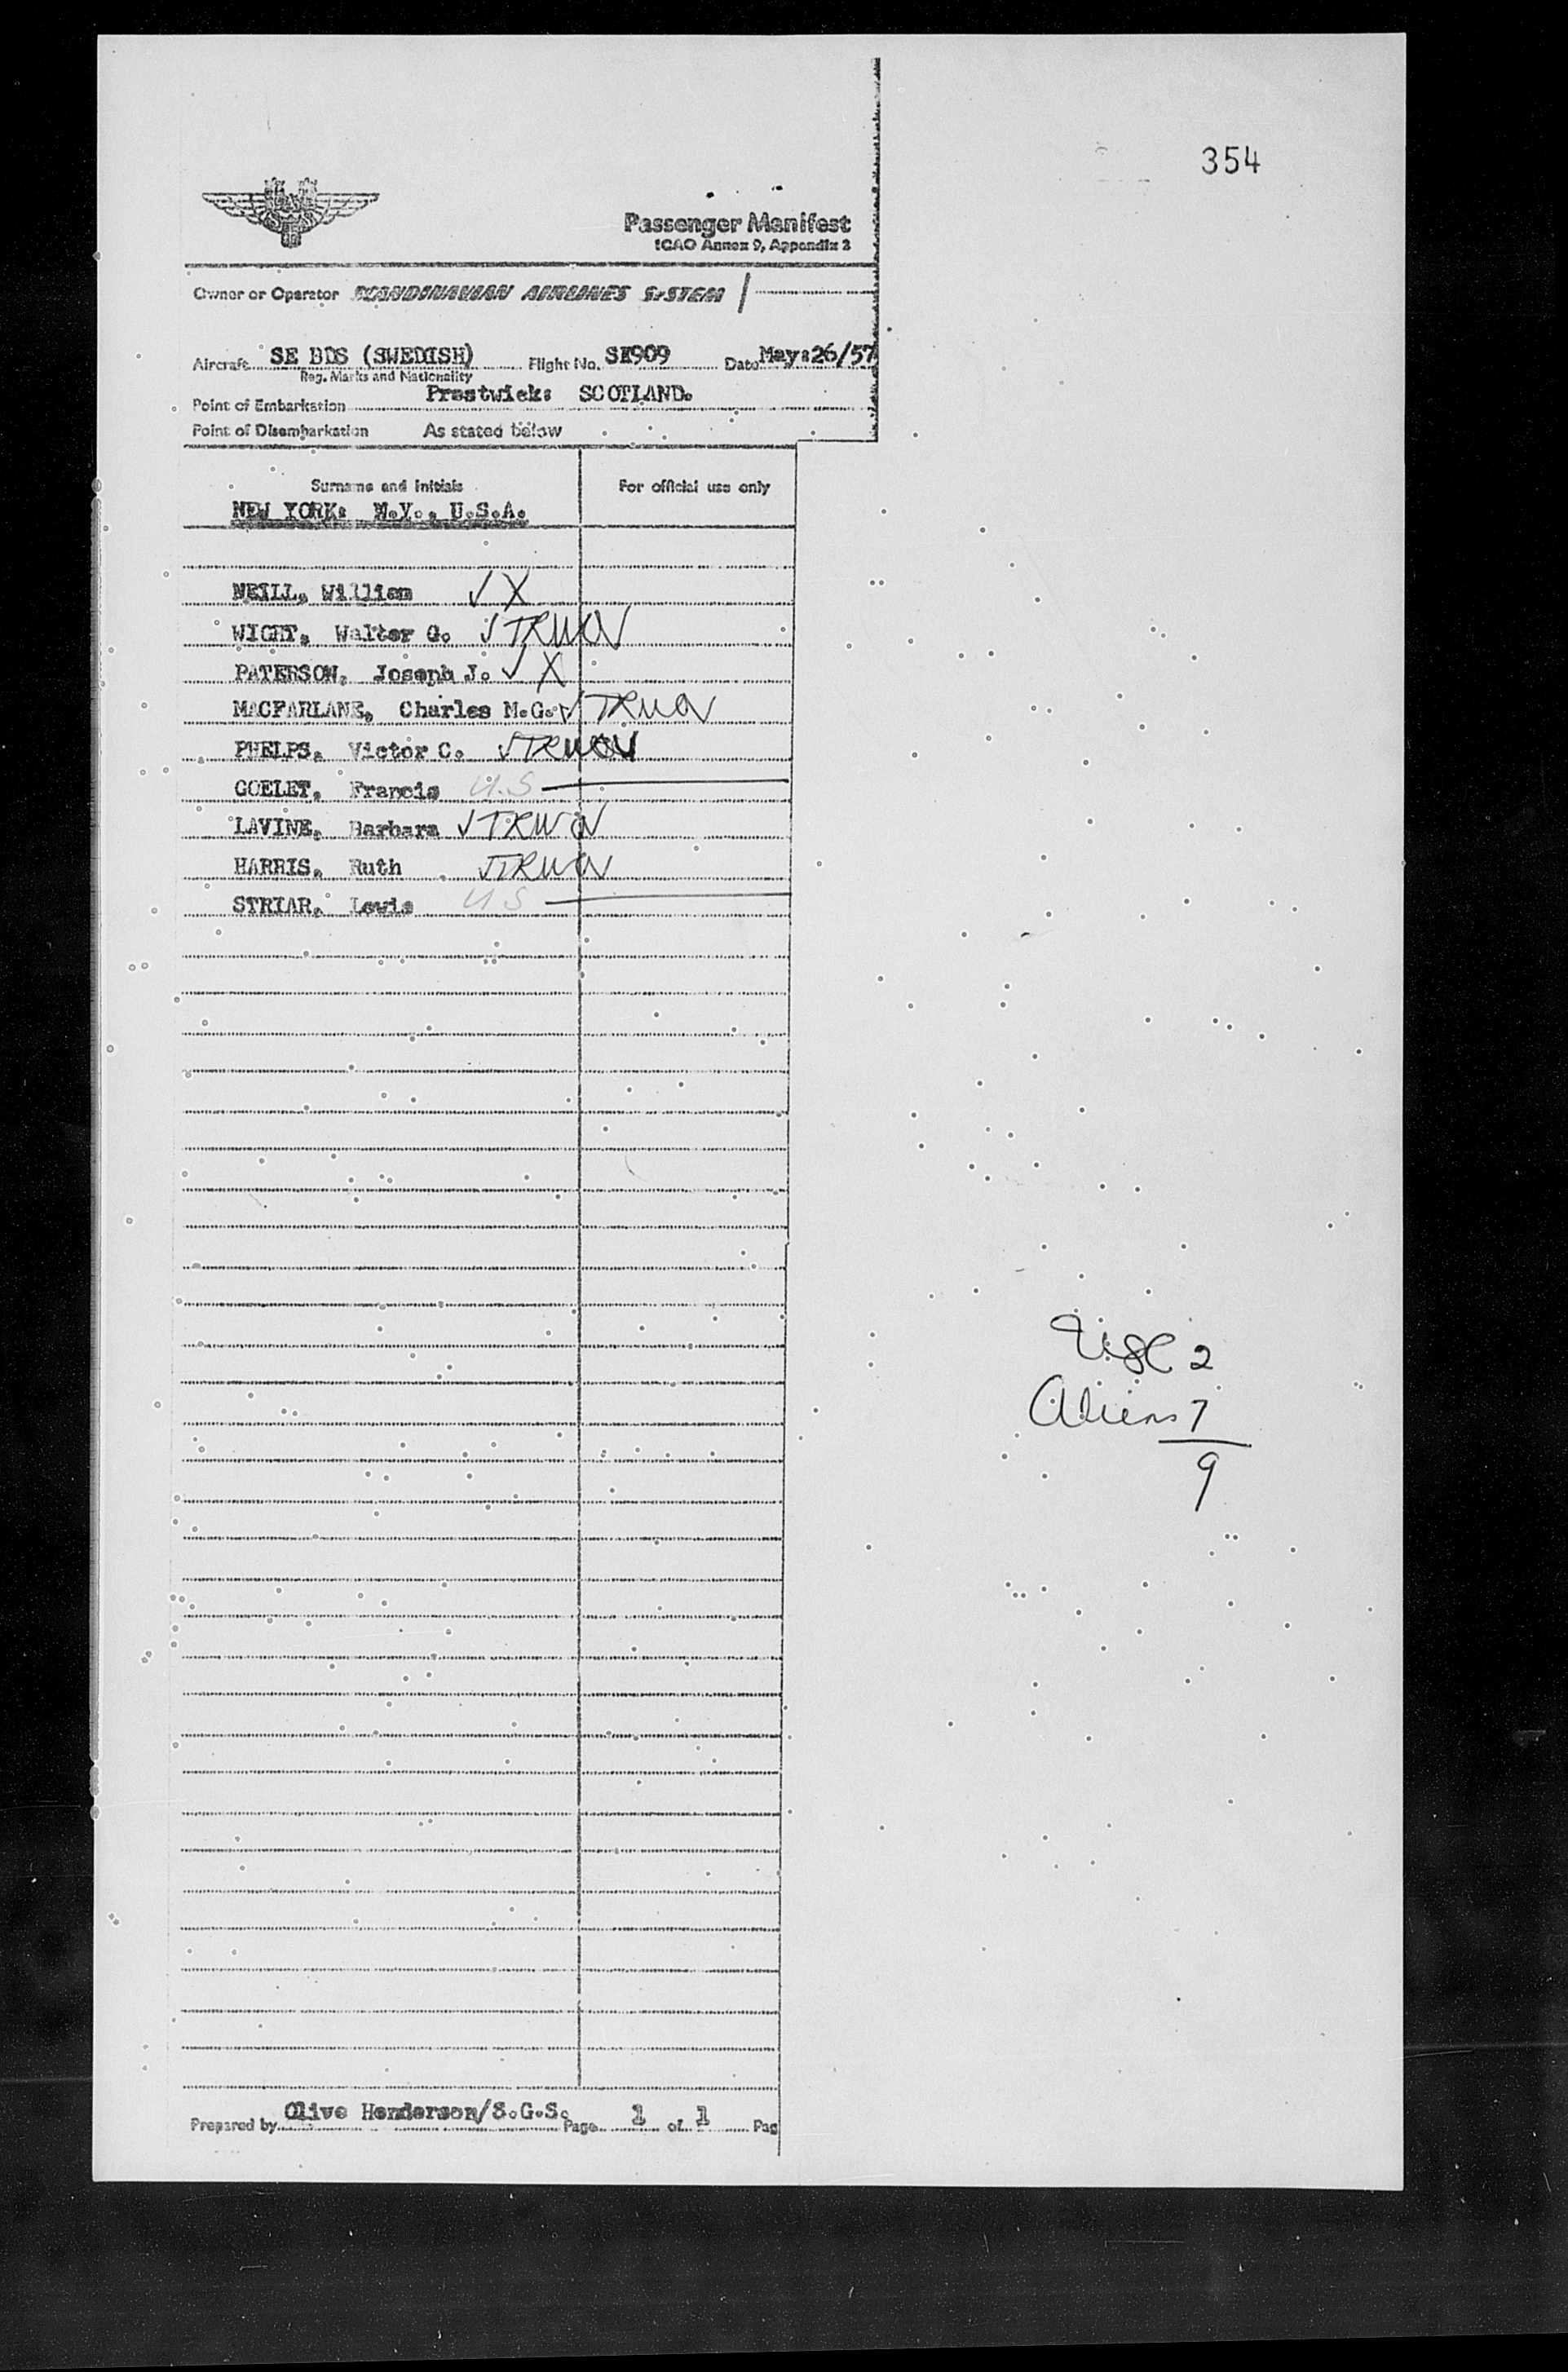 354
Passenger Manifest
ICAO Annex 9, Appendix 2
Owner or Operator SCANDINAVIAN AIRLINES SYSTEM
Aircraft SE BDS (SWEDISH) Flight No. SK909 Date May:26/57
Reg. Marks and Nationality
Point of Embarkation Prestwick: SCOTLAND.
Point of Disembarkation As stated below
Surname and Initials For official use only
NEW YORK: N.Y., U.S.A.
NEILL, William √ X
WIGHT, Walter G. √ TRWOV
PATERSON, Joseph J. √ X
MACFARLANE, Charles M.G. √ TRWOV
PHELPS, Victor C. √ TRWOV
GOELET, Francis U.S
LAVINE, Barbara √ TRWOV
HARRIS, Ruth √ TRWOV
STRIAR, Lewis U S
USC 2
Aliens 7
9
Prepared by Olive Henderson/S.G.S. Page 1 of 1 Pag